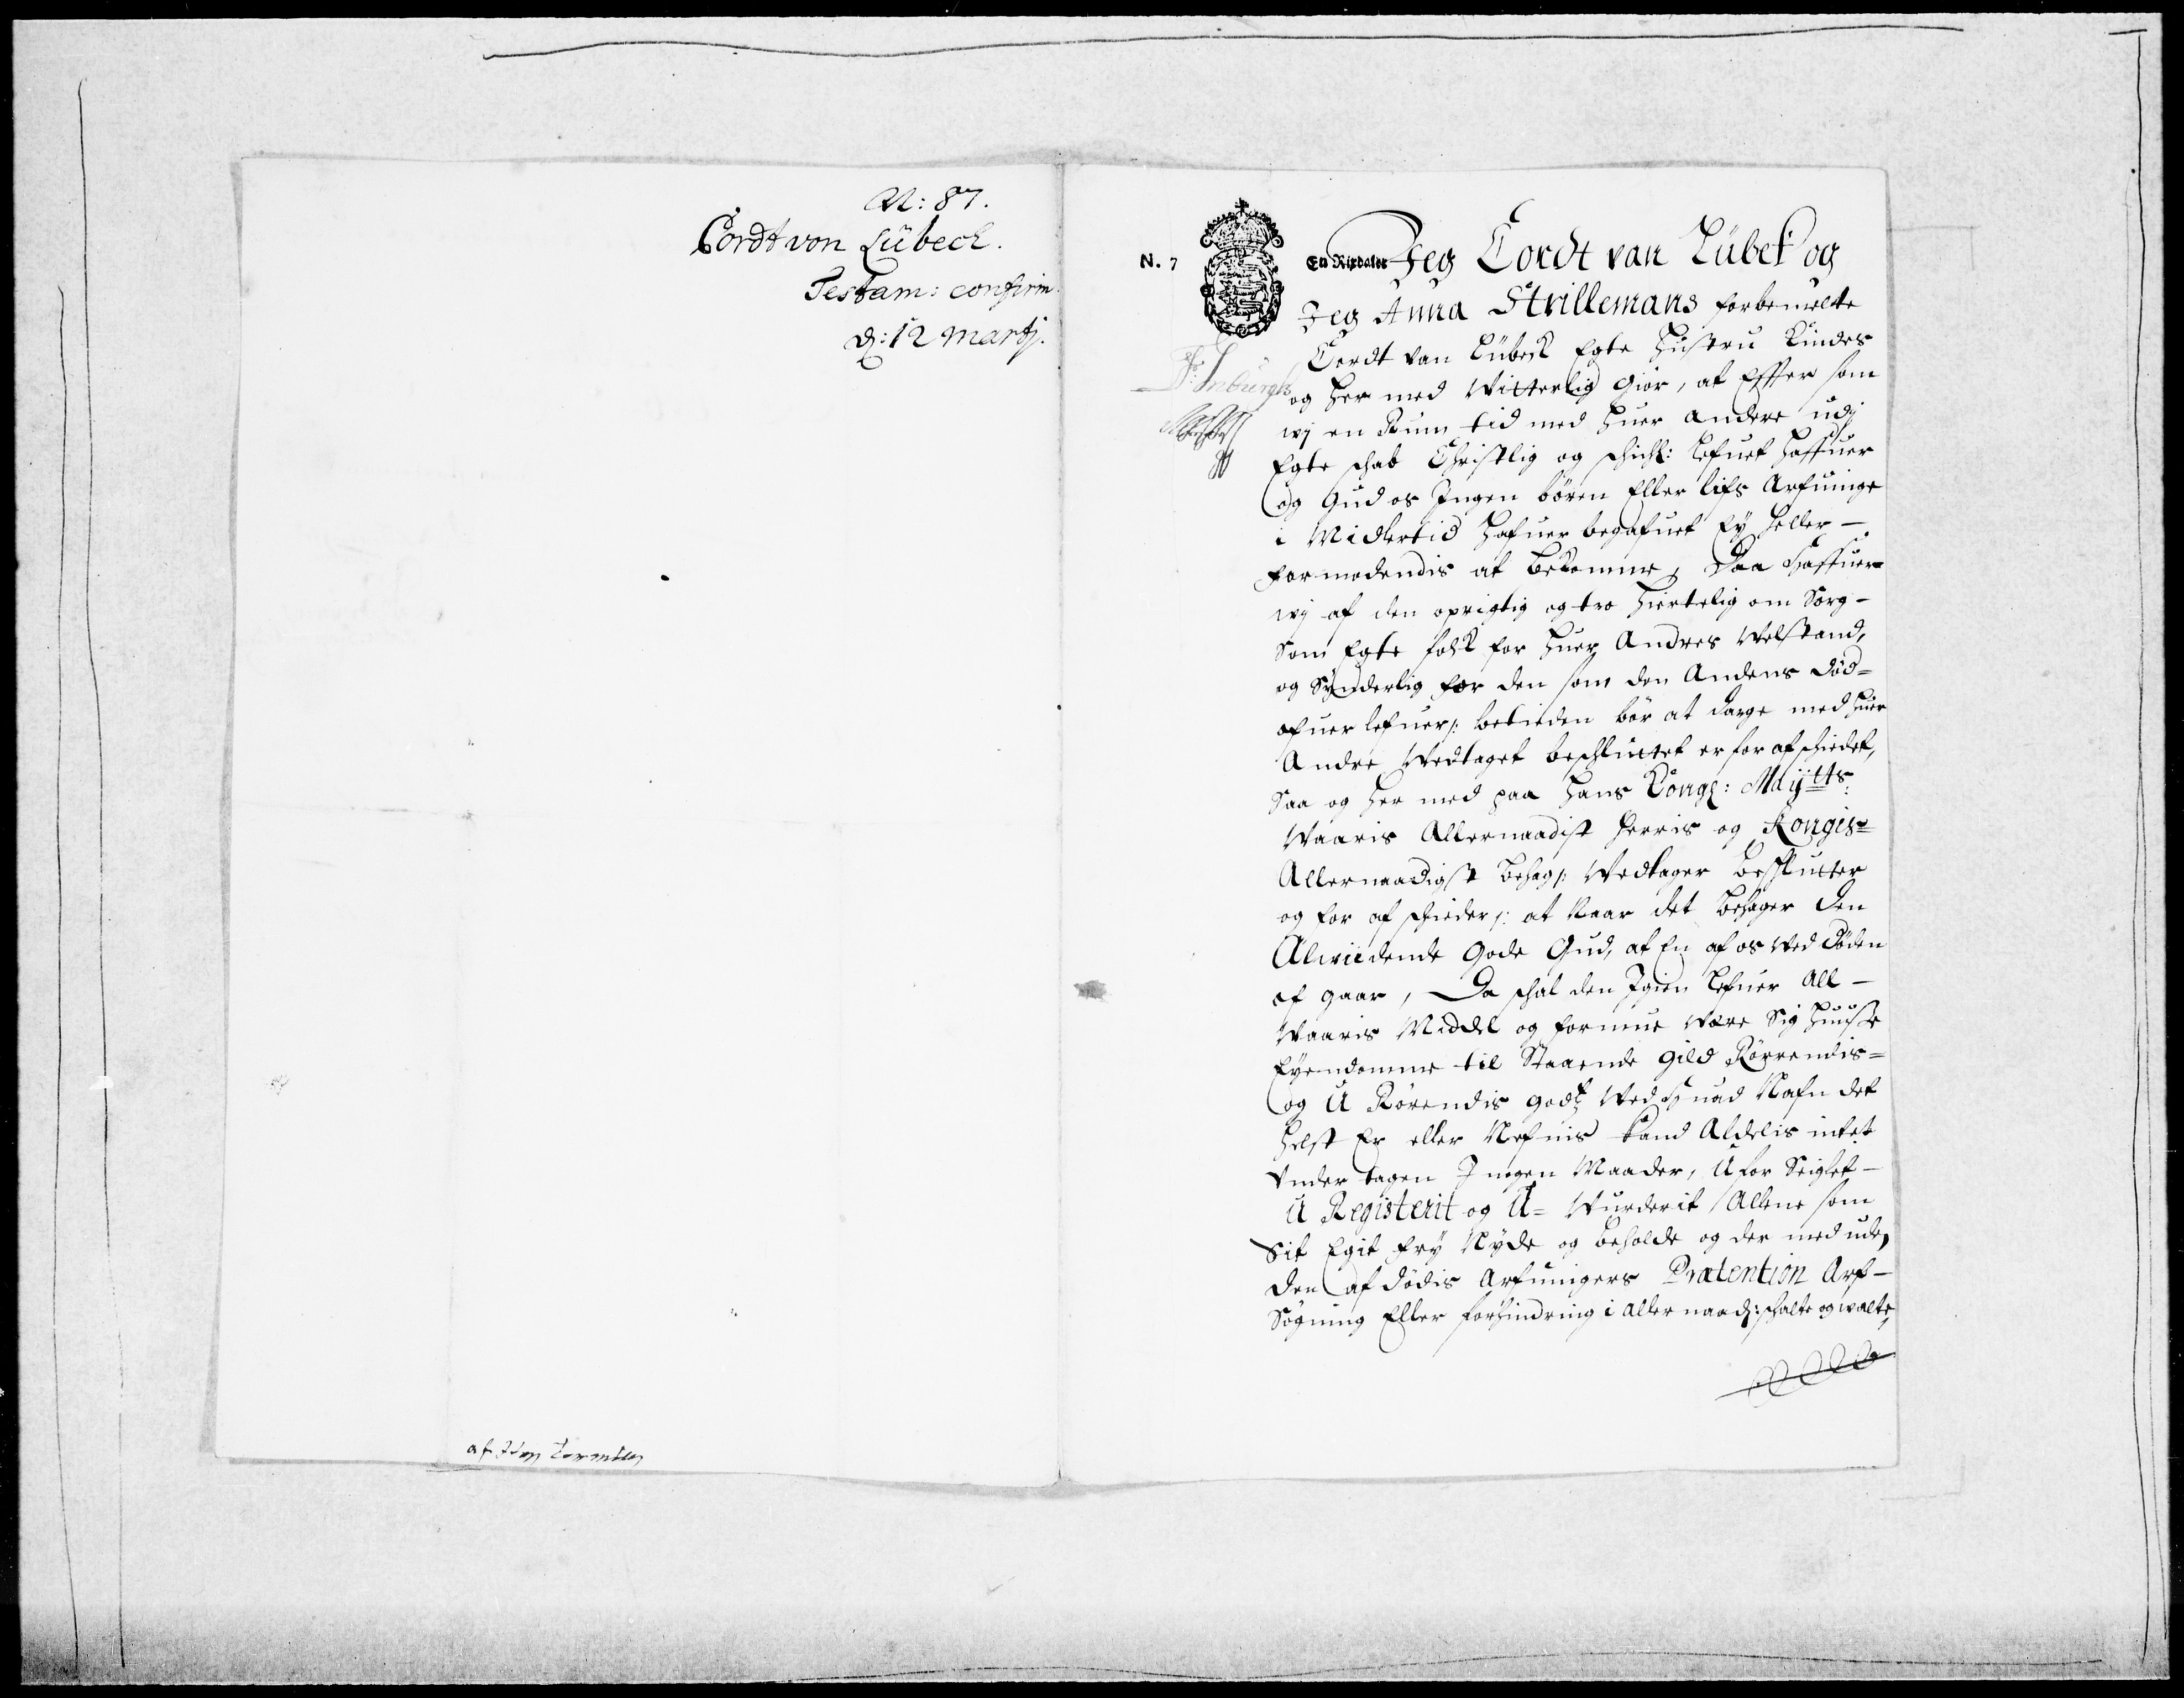 N: 87.
Cordt von Lübeck.
Testam: confirm.
d: 12 Martj.
N. 7
En Rixdaler
Jeg Cordt van Lübek og
Jeg Anna Strillemans forbemelte
Cordt van Lübeck Egte Hustru Kindes
og her med Witterlig giør, at Effter som
wj en Rum tid med huer andere udj
Egte schab Christlig og schichl: lefuet haffuer
og Gud os Ingen børen Eller lifs Arfuinge
i Midlertid hafuer begafuet Ey heller —
formodendis at bekomme, Daa Haffuer
wj af den oprigtig og tro hiertelig om Sorg —
Som Egte folk for huer Andres Welstand,
og Synderlig for den som den Andens død =
ofuer lefuer /: betieden bør at darge med huer
Andre Wedtaget beschluttet er for afschiedet,
Saa og her med paa Hans Kongl: Maÿtts:
Waaris Allernaadist Herris og Kongis =
Allernaadigst behag /: Wedtager beschlutter
og for af schieder /: at Naar det behager den
Alwiidende Gode Gud, at En af os Wed Døden
af gaar, Da schal den Igien lefuer All —
Waaris Middel og formue Være Sig Huuse
Eyendomme til Staaende gield Rørrendis =
og U Rørendis godtz Wed Huad Nafn det
helst Er eller Nefnis kand Aldelis intet
Under tagen I nogen Maader, U for Seiglet —
U Registerit og U = Wurderit / Allene som
Sit Egit fry Nyde og beholde og der med uden
den af dødis Arfuingers Prætention Arf —
Søgning Eller forhindring i Aller naad: schalte og walte,